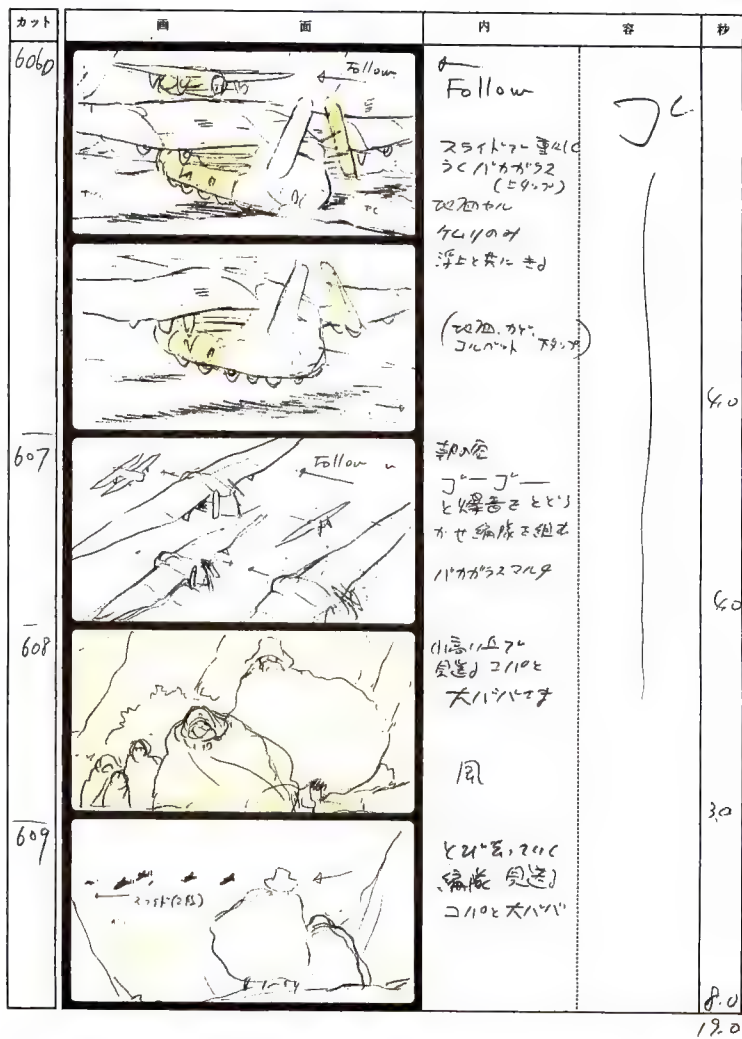 カット
画
面
内
容
秒
606D
Follow
Follow
ゴ
スライドで重々しく
うくバカガラス
(上タップ)
地面セル
ケムリのみ
浮上と共に
コルベット 下タップ
4.0
607
Follow
朝の空
ゴーゴー
と爆音をとどろ
かせ編隊を組む
バカガラスマルチ
4.0
608
小高い丘で
見送る コバと
大ババさま
風
3.0
609
スライド(2段)
とび去っていく
編隊 見送る
コバと大ババ
8.0
19.0